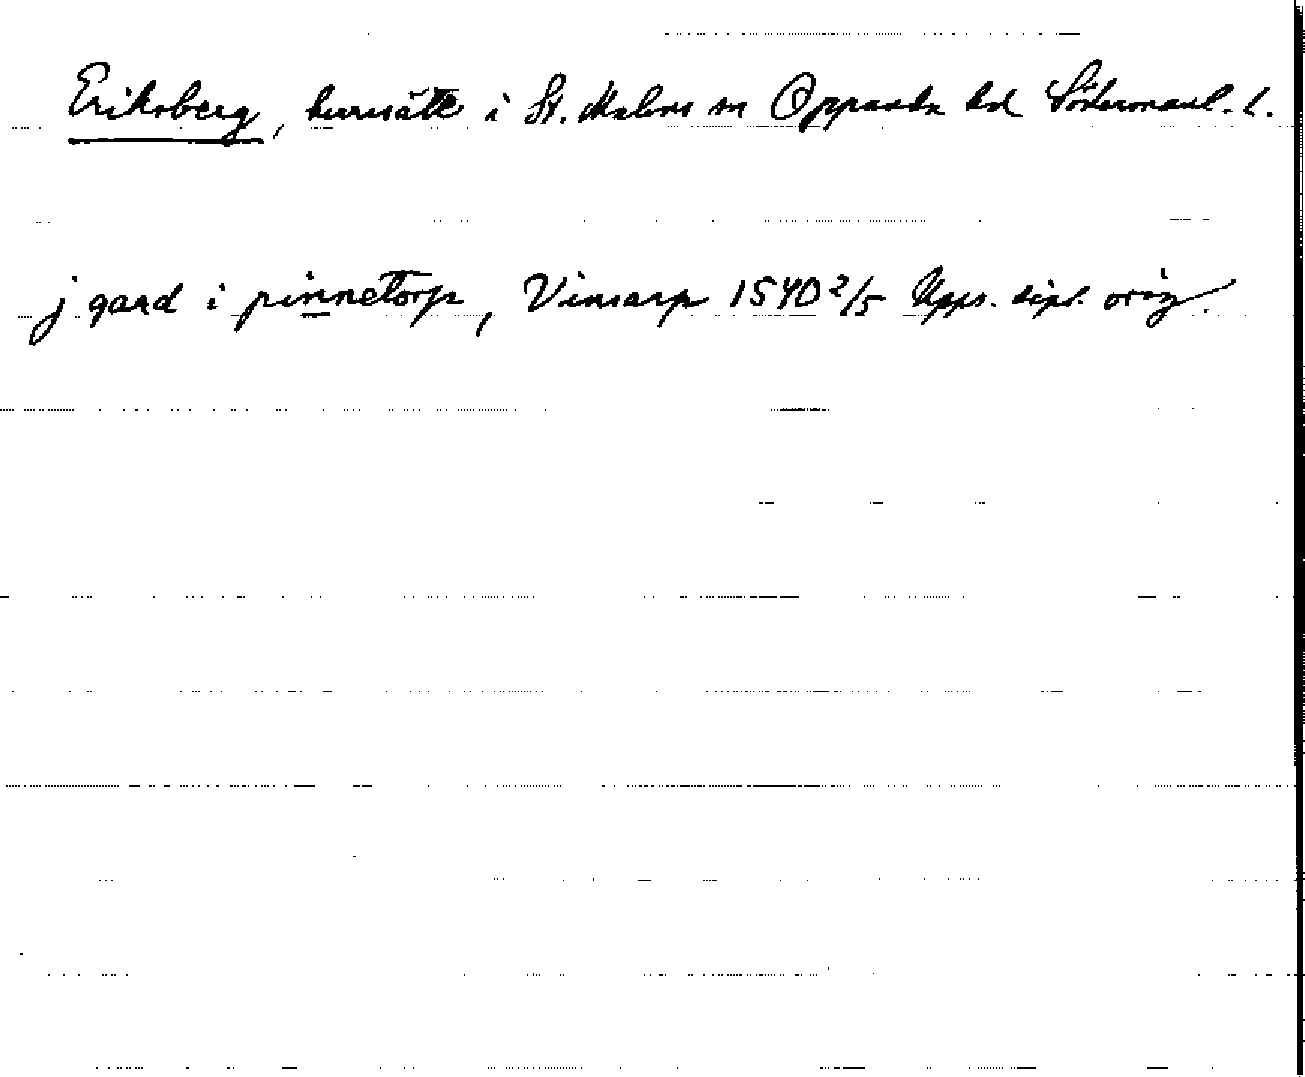 Eriksberg, herrsäte i St. Malms sn Oppunda hd Södermanl. l.
j gard i pinnetorp, Vinsarp 1540 2/5 Upps. dipl. orig.